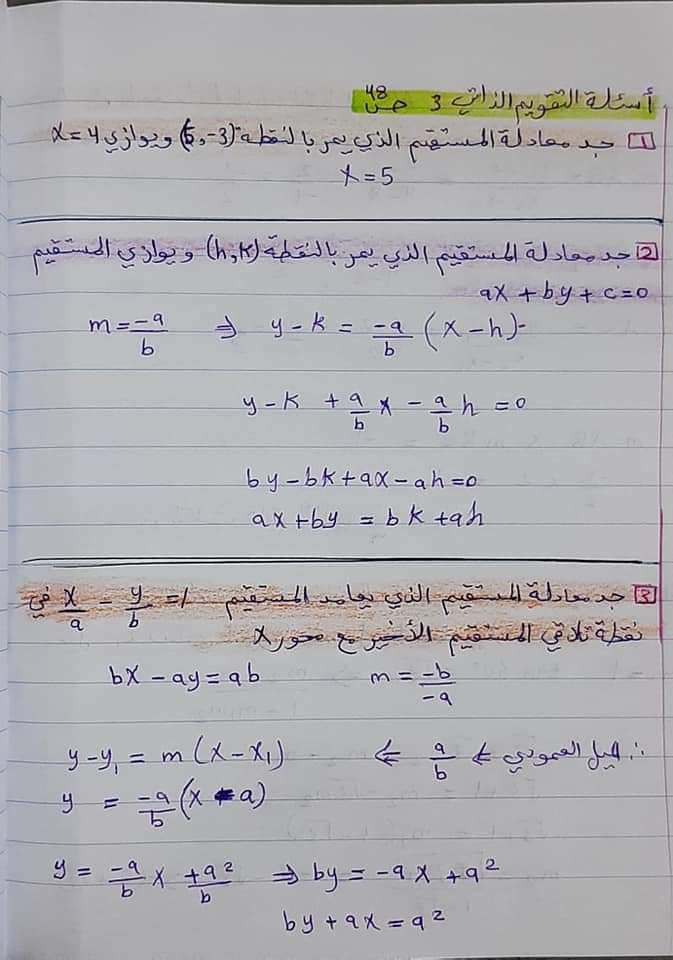 أسئلة التقويم الذاتي 3 ص 48
1 جد معادلة المستقيم الذي يمر بالنقطة (5,-3) ويوازي x=4
x=5
2 جد معادلة المستقيم الذي يمر بالنقطة (h,k) ويوازي المستقيم
ax+by+c=0
m=-a/b ⇒ y-k = -a/b (x-h)
y-k + a/b x - a/b h =0
by-bk+ax-ah=0
ax+by = bk+ah
3 جد معادلة المستقيم الذي يعامد المستقيم x/a - y/b =1 في
نقطة تلاقي المستقيم الأخير مع محور x
bx-ay=ab m=-b/-a
y-y₁ = m(x-x₁) ∴ ميل العمودي a/b
y = -a/b (x-a)
y = -a/b x +a²/b ⇒ by = -ax+a²
by+ax=a²